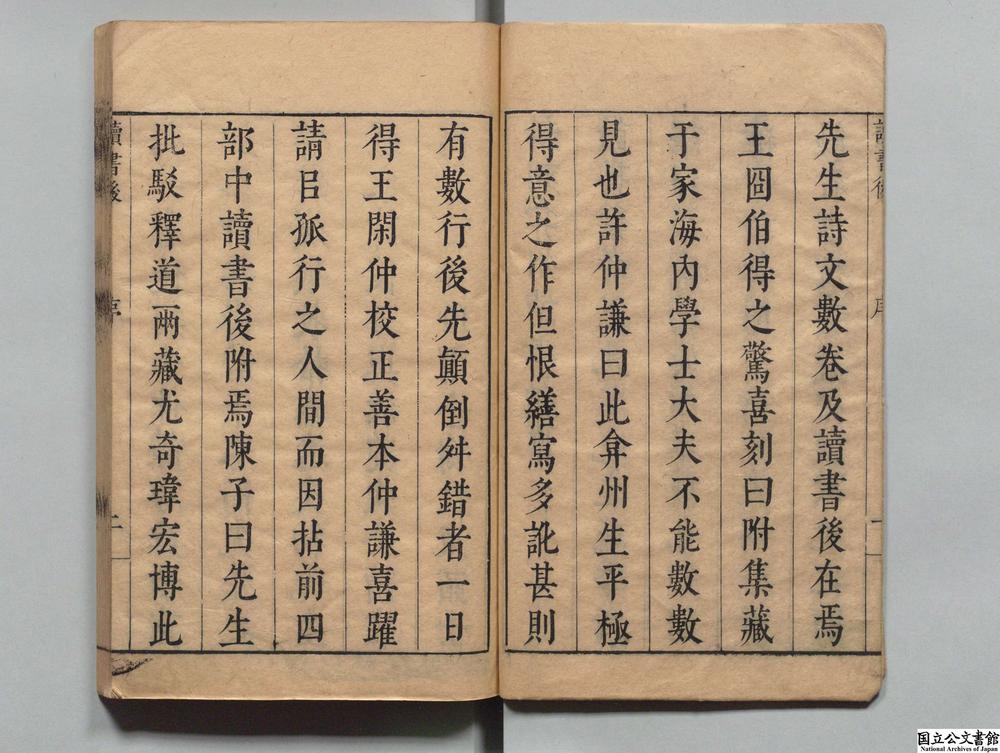 先生詩文數卷及讀書後在焉
王囧伯得之驚喜刻曰附集藏
于家海內學士大夫不能數數
見也許仲謙曰此弇州生平極
得意之作但恨繕寫多訛甚則
有數行後先顛倒舛錯者一日
得王閑仲校正善本仲謙喜躍
請㠯孤行之人間而因拈前四
部中讀書後附焉陳子曰先生
批駁釋道兩藏尤奇瑋宏博此
讀書後
序
二
国立公文書館
National Archives of Japan